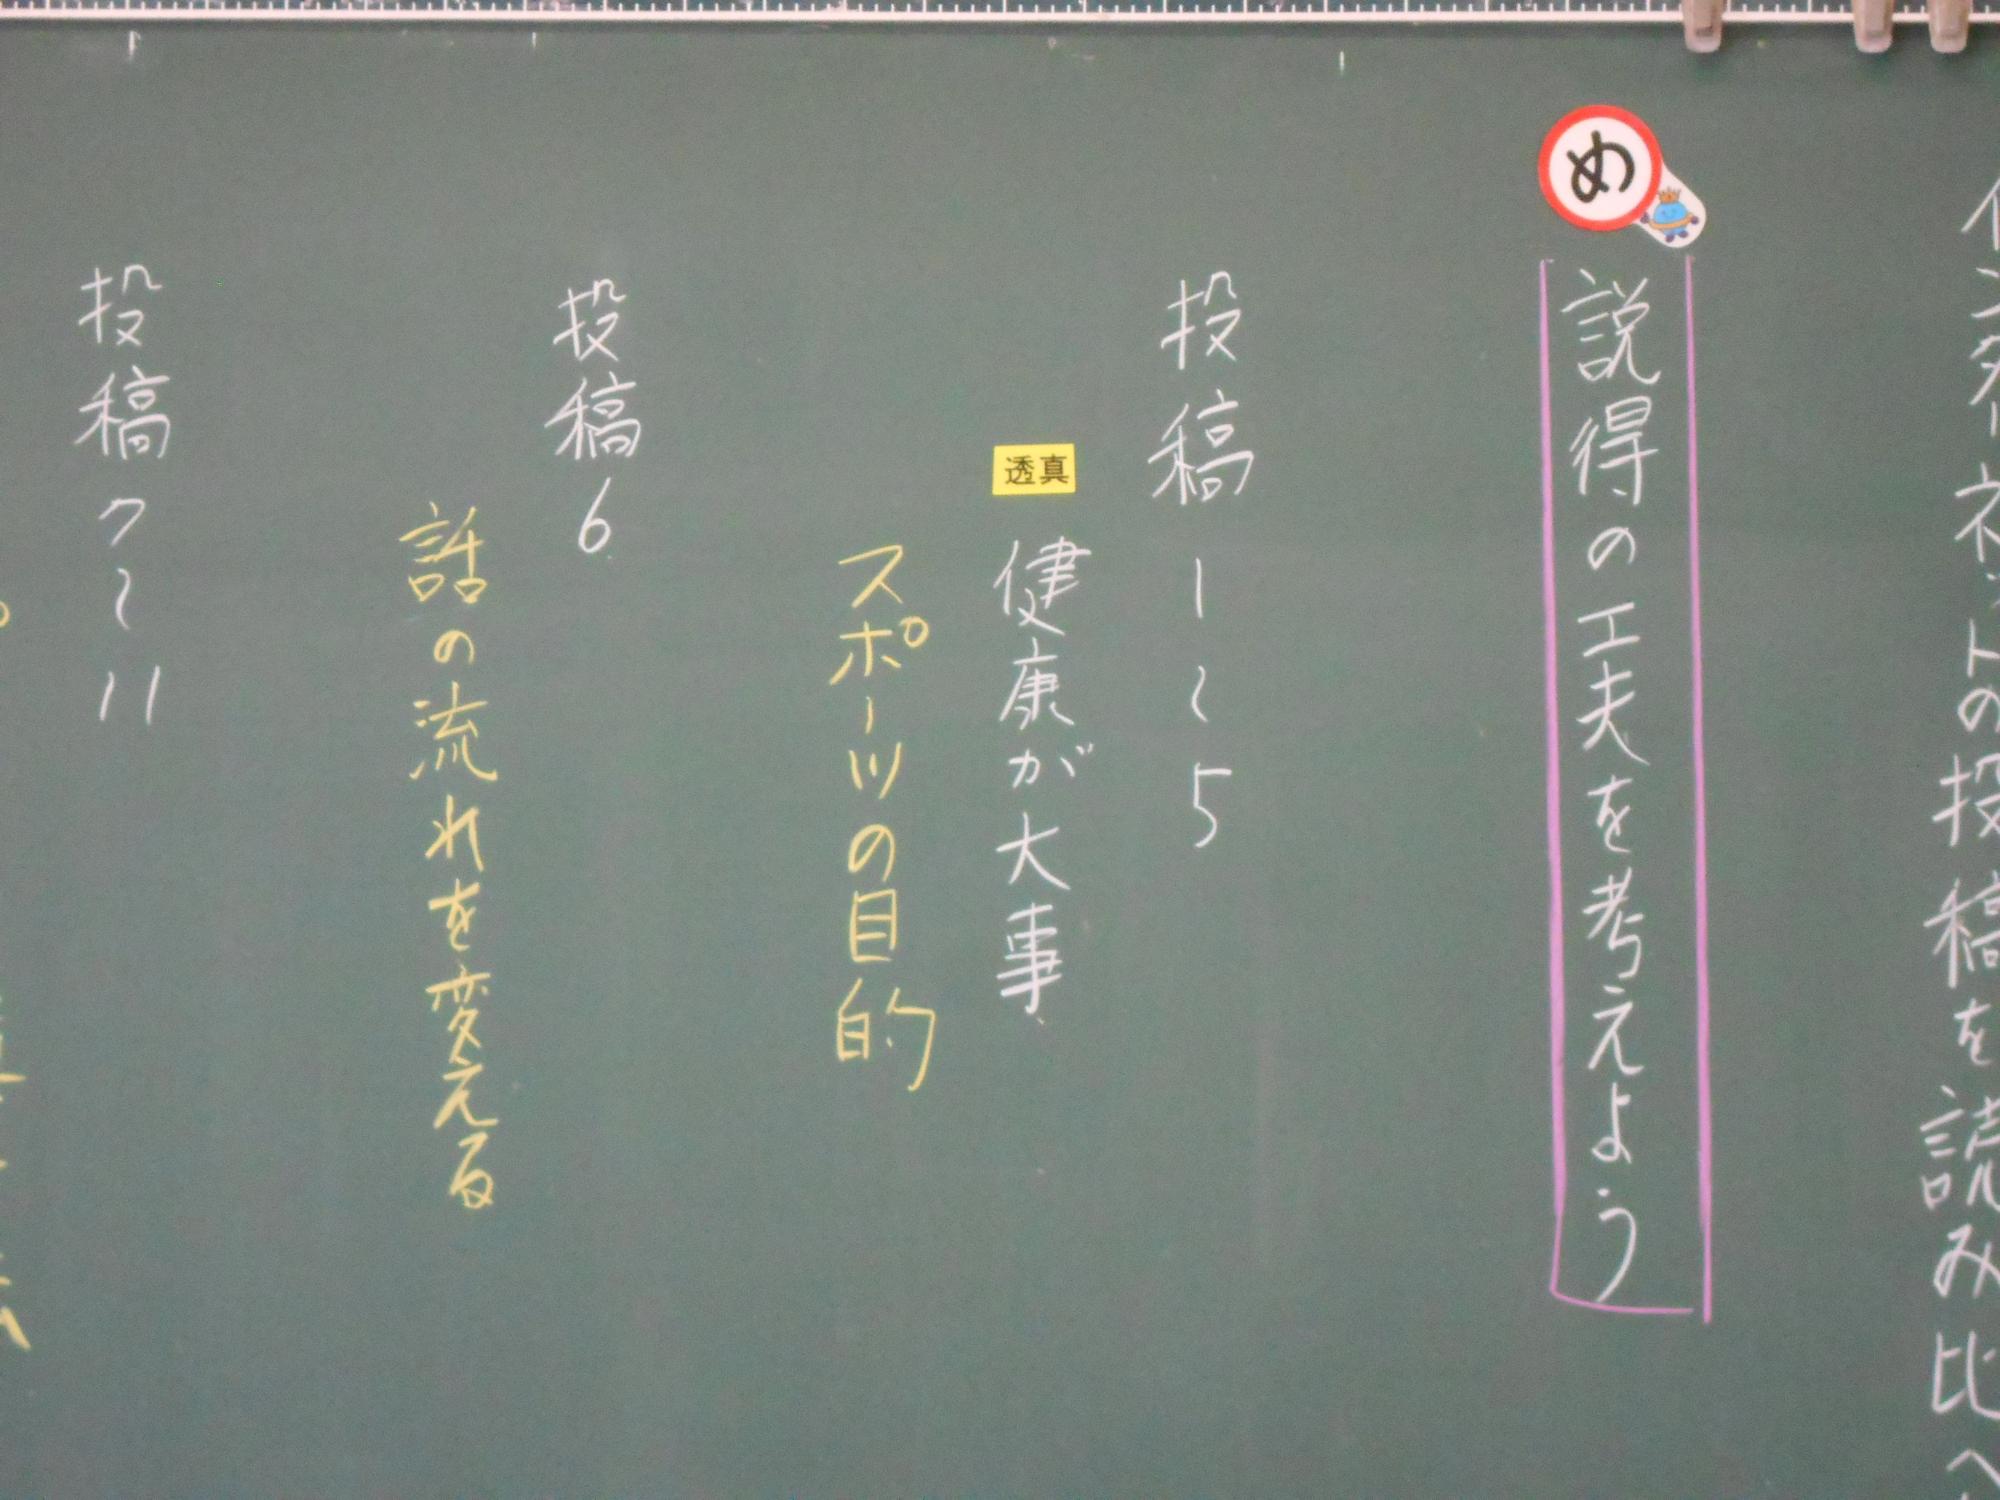 インターネットの投稿を読み比べ
め
説得の工夫を考えよう
投稿1〜5
透真
健康が大事
スポーツの目的
投稿6
話の流れを変える
投稿7〜11